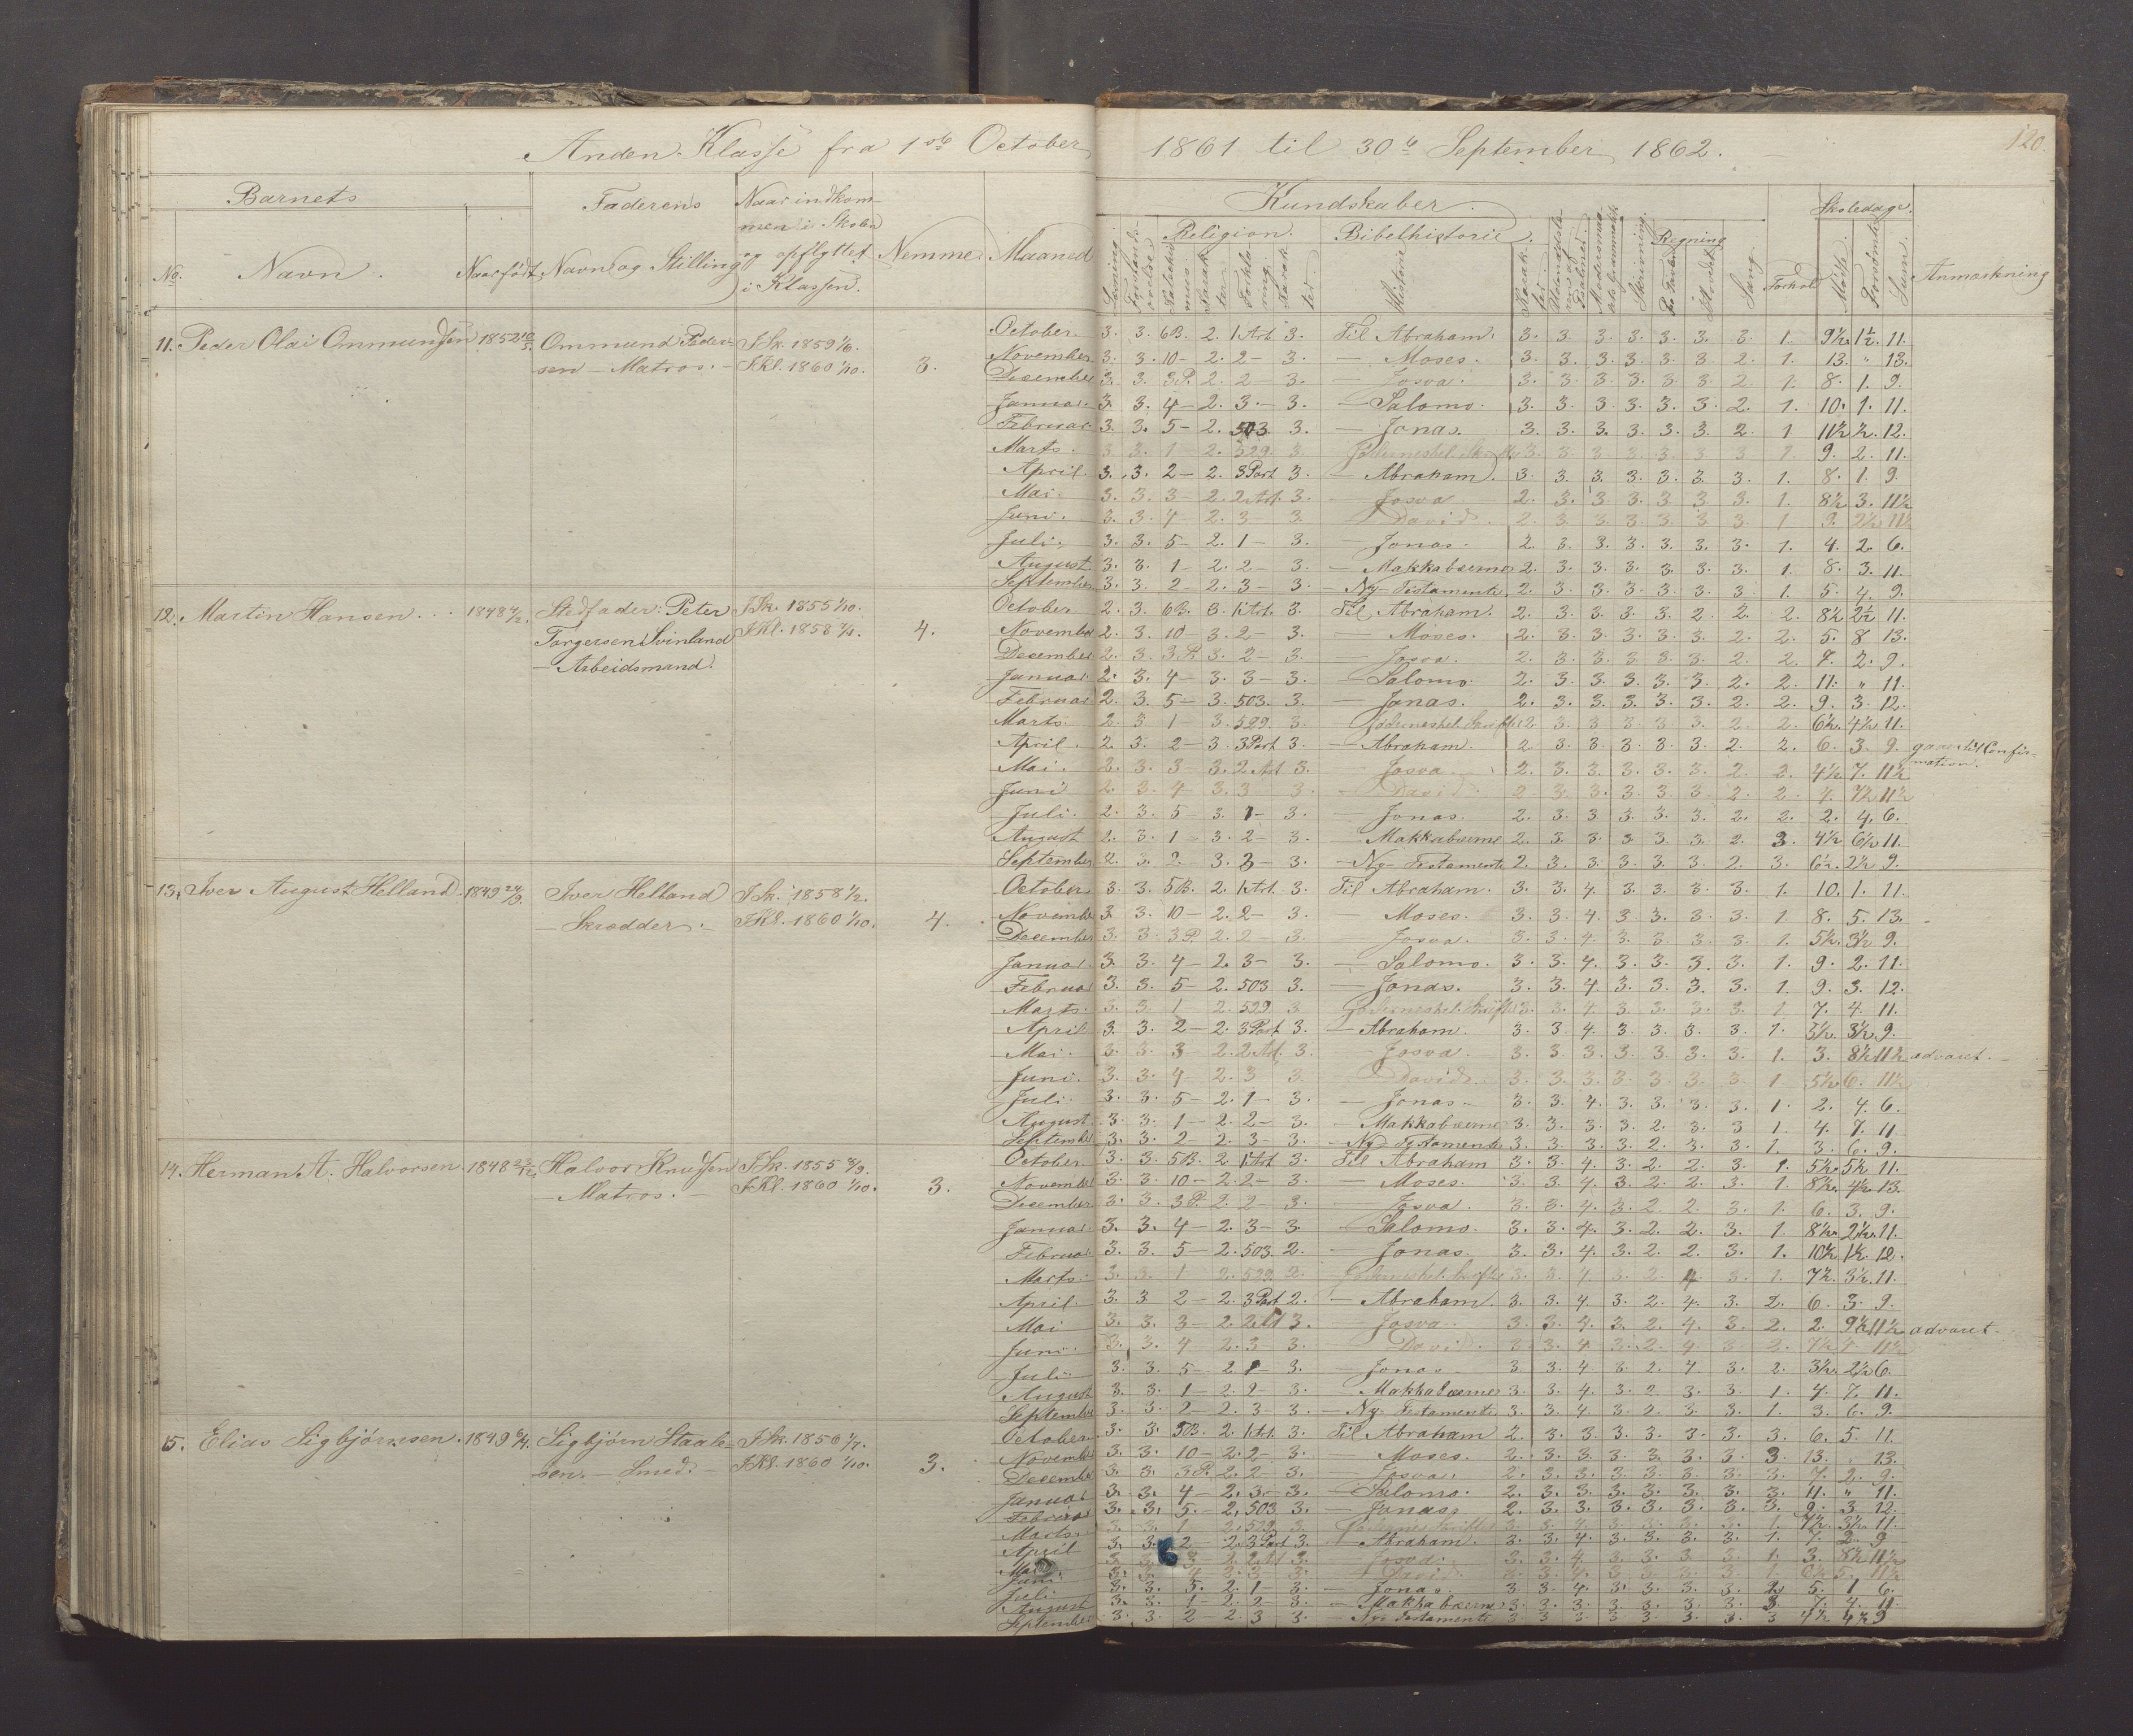 Anden Klasse fra 1ste October 1861 til 30te September 1862.
120.
Barnets
Faderens
Naar indkom-
men i Skolen
og opflyttet
i Klassen.
Nemme
Maaned
No.
Navn.
Naar født
Navn og Stilling
Kundskaber.
Religion.
Bibelhistorie.
Historie
Regning
Skrivning.
Sang
Forhold
Skoledage.
Mødte.
Forsømte
Sum.
Anmærkning
11. Peder Olai Ommundsen 1852
Ommund Peder-
sen - Matros. -
I Sk. 1859
I Kl. 1860 1/10.
3.
October. 3. 3. 6B. 2. 1.Art. 3. Til Abraham. 3. 3. 3. 3. 3. 3. 3. 1. 9½ 1½. 11.
November. 3. 3. 10 - 2. 2 - 3. - Moses. 3. 3. 3. 3. 3. 3. 2. 1. 13. " 13.
December 3. 3. 3P. 2. 2 - 3. - Josva. 3. 3. 3. 3. 3. 3. 2. 1. 8. 1. 9.
Januar. 3. 3. 4 - 2. 3. - 3. - Salomo. 3. 3. 3. 3. 3. 3. 2. 1. 10. 1. 11.
Februar. 3. 3. 5 - 2. 503 3. - Jonas. 3. 3. 3. 3. 3. 3. 2. 1 11½ ½. 12.
Marts. 3. 3. 1 - 2. 529. 3. 3. 3. 3. 3. 3. 3. 3 1. 9. 2. 11.
April. 3. 3. 2 - 2. 3Part 3. - Abraham. 3. 3. 3. 3. 3. 3. 3. 1. 8. 1. 9.
Mai. 3. 3. 3 - 2. 2.Art. 3. - Josva 2. 3. 3. 3. 3. 3. 3. 1. 8½ 3. 11½
Juni. 3. 3. 4 - 2. 3 - 3. - David. 2. 3. 3. 3. 3. 3. 3. 1 9. 2½ 11½
Juli. 3. 3. 5 - 2. 1 - 3. - Jonas. 2. 3. 3. 3. 3. 3. 3. 1. 4. 2. 6.
August. 3. 3. 1 - 2. 2 - 3. - Makkabæerne 2. 3. 3. 3. 3. 3. 3. 1. 8. 3. 11.
September 3. 3. 2 2. 3 - 3. - Ny-Testamente. 2. 3. 3. 3. 3. 3. 3. 1. 5. 4. 9.
12. Martin Hansen. 1848
Stedfader: Peter
Torgersen Svinland
- Arbeidsmand.
I Sk. 1855 1/10.
I Kl. 1858
4.
October 2. 3. 6B. 3. 1.Art. 3. Til Abraham. 2. 3. 3. 3. 3. 2. 2. 2. 8½ 2½ 11.
November 2. 3. 10 - 3. 2 - 3. - Moses. 2. 3. 3. 3. 3. 3. 2. 2. 5. 8 13.
December 2. 3. 3P. 3. 2 - 3. - Josva. 2. 3. 3. 3. 3. 3. 2. 2. 7. 2. 9.
Januar. 2. 3. 4 - 3. 3 - 3. - Salomo. 2. 3. 3. 3. 3. 3. 2. 2. 11. " 11.
Februar 2. 3. 5 - 3. 503. 3. - Jonas. 2. 3. 3. 3. 3. 3. 2. 2. 9. 3. 12.
Marts. 2. 3 1 - 3. 529. 3. 2. 3. 3 3. 3. 3. 2. 2. 6½. 4½ 11.
April. 2. 3. 2 - 3. 3Part 3. - Abraham. 2 3. 3. 3. 3. 3. 2. 2. 6. 3. 9. gaaer til Confir-
mation.
Mai. 2. 3. 3 - 3. 2.Art 3. - Josva. 2. 3. 3. 3. 3. 3. 2. 2. 4½ 7. 11½
Juni 2. 3. 4 - 3. 3 3. - David. 2 3. 3. 3. 3. 3. 2. 2. 4. 7½ 11½
Juli. 2. 3. 5 - 3. 1 - 3. - Jonas. 2. 3. 3. 3. 3. 3. 2. 2. 2. 4. 6.
August 2. 3. 1 - 3. 2 - 3. - Makkabæerne 2. 3. 3. 3. 3. 3. 2. 3. 4½ 6½ 11.
September 2. 3. 2 - 3. 3 - 3. - Ny-Testamente 2. 3. 3. 3. 3. 3. 2. 3. 6½. 2½ 9.
13. Iver August Helland. 1849
Iver Helland
- Skrædder. -
I Sk. 1858 1/2.
I Kl. 1860 1/10.
4.
October 3. 3. 5B. 2. 1.Art. 3. Til Abraham. 3. 3. 4. 3. 3. 3. 3. 1. 10. 1. 11.
November 3. 3. 10 - 2. 2 - 3. - Moses. 3. 3. 4. 3. 3. 3. 3. 1 8. 5. 13.
December 3. 3. 3P. 2. 2 - 3. - Josva. 3. 3. 4. 3. 3. 3. 3. 1. 5½. 3½ 9.
Januar. 3. 3. 4 - 2. 3 - 3. - Salomo. 3. 3. 4. 3. 3. 3. 3. 1. 9. 2. 11.
Februar 3. 3. 5 - 2. 503 3. - Jonas. 3. 3. 4. 3. 3. 3. 3. 1. 9. 3. 12.
Marts. 3. 3 1 2. 529. 3 3. 3. 4 3. 3. 3. 3. 1 7. 4. 11.
April 3. 3. 2 - 2. 3Part 3. - Abraham. 3. 3. 4. 3. 3. 3. 3. 1. 5½. 3½ 9.
Mai. 3. 3. 3 - 2. 2.Art. 3. - Josva. 3. 3. 3. 3. 3. 3. 3. 1. 3. 8½ 11½ advaret. -
Juni. 3. 3. 4 - 2. 3 3. - David. 3. 3. 3. 3. 3. 3. 3. 1 5½ 6. 11½
Juli. 3. 3. 5 - 2. 1 - 3. - Jonas - 3. 3. 4. 3. 3. 3. 3. 1. 2. 4. 6.
August. 3. 3. 1 - 2. 2 - 3. - Makkabæerne 3. 3. 3. 3. 2. 3. 3 1. 4. 7. 11.
September 3. 3. 2 - 2. 3 - 3. - Ny-Testamente 3. 3. 3. 3. 2. 3. 3 1. 3. 6. 9.
14. Herman A. Halvorsen. 1848
Halvor Knudsen
- Matros. -
I Sk. 1855
I Kl. 1860 1/10.
3.
October. 3. 3. 5B. 2 1.Art 3. Til Abraham 3. 3. 4. 3. 2. 2. 3. 1. 5½. 5½ 11.
November 3. 3. 10 - 2. 2 - 3. - Moses. 3. 3. 4. 3. 2. 2. 3. 1. 8½. 4½. 13.
December 3. 3. 3P. 2. 2 - 3. - Josva. 3. 3. 4. 3. 2. 2. 3. 1. 6. 3. 9.
Januar. 3. 3. 4 - 2. 3 - 3. - Salomo. 3. 3. 4. 3. 2. 2. 3. 1 8½. 2½. 11.
Februar 3. 3. 5 - 2. 503. 2. - Jonas. 3. 3. 4. 3. 2. 2. 3. 1. 10½ 1½. 12.
Marts. 3. 3. 1 2. 529. 2. 3. 3. 4. 3. 2. 4. 3. 1. 7½. 3½. 11.
April. 3. 3 2 - 2. 3Part 2. - Abraham. 3. 3. 4. 3. 2. 4. 3. 2. 6. 3. 9.
Mai 3. 3. 3 - 2. 2.Art 3. - Josva. 3. 3. 4. 3. 2. 4. 3. 2. 2. 9½ 11½ advaret -
Juni. 3. 3. 4 - 2. 3 - 3. - David. 3. 3. 4. 3. 2. 4. 3. 2. 11½
Juli 3. 3. 5 - 2. 1 - 3. - Jonas 3 3. 4. 3. 2. 4. 3. 2. 3½. 2½ 6.
August 3. 3. 1 - 2. 2 - 3. - Makkabæerne 3. 3. 4. 3. 2 3. 3. 1. 4. 7. 11.
September 3. 3. 2 - 2. 3 - 3. - Ny-Testamente 3. 3. 4. 3. 2. 3. 3. 1. 3. 6. 9.
15. Elias Sigbjørnsen. 1849
Sigbjørn Staale-
sen. - Smed. -
I Sk. 1856
I Kl. 1860 1/10.
3.
October 3. 3. 5B. 2. 1.Art. 3. Til Abraham 2. 3. 3. 3. 3. 3. 3. 3. 6. 5. 11.
November 3. 3. 10 - 2. 2 - 3. Moses. 2. 3. 3. 3. 3. 3. 3. 3 13. 13.
December 3. 3. 3P. 2. 2 - 3. Josva. 2. 3. 3. 3. 3. 3. 3. 3. 7. 2. 9.
Januar 3. 3. 4 - 2. 3 - 3. - Salomo. 2. 3. 3. 3. 3. 3. 3. 3. 11. " 11.
Februar 3. 3. 5. - 2. 503 3. - Jonas. 2. 3. 3. 3. 3. 3. 3. 3. 9. 3. 12.
Marts. 3. 3. 1 2. 529 3. 3. 3. 3. 3. 3. 1. 7½. 3½. 11.
April 3. 3. 2 - 2. 3Part 3. - Abraham. 3. 3. 4. 3. 3. 3. 3. 1. 7. 2. 9
Mai. 3. 3. 3 - 2. 3. - Josva. 3. 3. 4. 3. 3. 3. 3. 1. 3. 8½ 11½
Juni 3. 3. 3. - David. 11½
Juli 3. 3. 5. 2. 1 - 3. - Jonas. 3. 3. 4. 3. 3. 3. 3. 2. 5. 1 6.
August 3. 3. 1 - 2. 2 - 3. - Makkabæerne 3. 3. 3. 3. 3. 3. 3. 3. 7. 4. 11.
September 3. 3. 2 - 2. 3 3. - Ny-Testamente 3 3 3 3. 3. 3. 3. 3 4½ 4½ 9